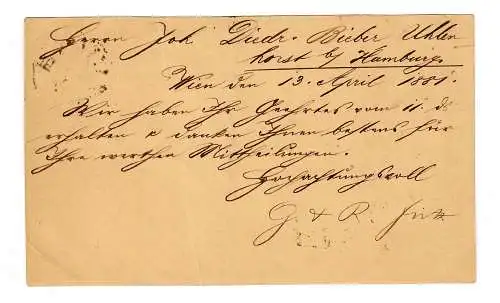 Herrn Joh Diedr. Bieber Uhlen
horst b/ Hamburg.
Wien den 13. April 1881.
Wir haben Ihr Geehrtes vom 11. d
erhalten & danken Ihnen bestens für
Ihre werthen Mittheilungen.
Hochachtungsvoll
G. & R. Fritz